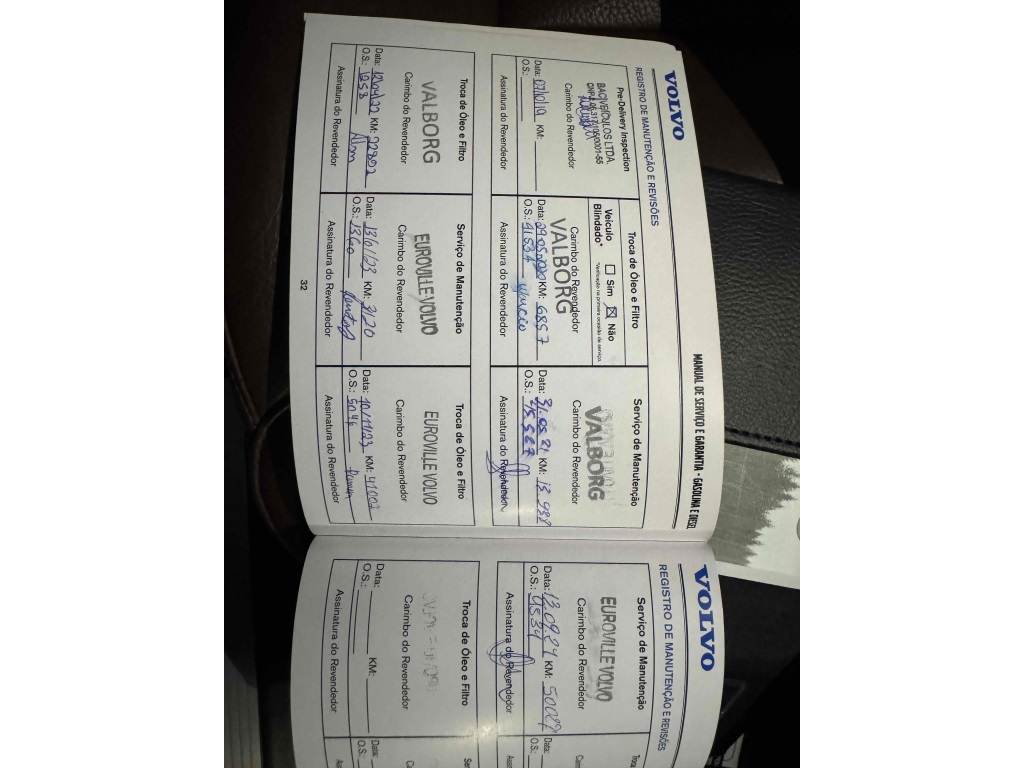 MANUAL DE SERVIÇO E GARANTIA - GASOLINA E DIESEL
VOLVO
REGISTRO DE MANUTENÇÃO E REVISÕES
Pre-Delivery Inspection
BACIVEÍCULOS LTDA.
Carimbo do Revendedor
Data: 07/10/19 KM:
O.S.:
Assinatura do Revendedor
Troca de Óleo e Filtro
Veículo Blindado*
Sim
Não
*Verificação na primeira ocasião de serviço.
Carimbo do Revendedor
VALBORG
Data: 29.05.2020 KM: 6857
O.S.: 41534
Assinatura do Revendedor
Serviço de Manutenção
VALBORG
Carimbo do Revendedor
Data: 31.05.21 KM: 13.988
O.S.: 45.527
Assinatura do Revendedor
Troca de Óleo e Filtro
VALBORG
Carimbo do Revendedor
Data: KM: 22892
O.S.: 1258
Assinatura do Revendedor
Serviço de Manutenção
EUROVILLE VOLVO
Carimbo do Revendedor
Data: 13/01/23 KM:
O.S.: 1360
Assinatura do Revendedor
Troca de Óleo e Filtro
EUROVILLE VOLVO
Carimbo do Revendedor
Data: 10/11/23 KM: 41002
O.S.: 5046
Assinatura do Revendedor
32
VOLVO
REGISTRO DE MANUTENÇÃO E REVISÕES
Serviço de Manutenção
EUROVILLE VOLVO
Carimbo do Revendedor
Data: 12.09.24 KM: 50027
O.S.: 9534
Assinatura do Revendedor
Troca de Óleo e Filtro
Carimbo do Revendedor
Data: KM:
O.S.:
Assinatura do Revendedor
Data:
O.S.: